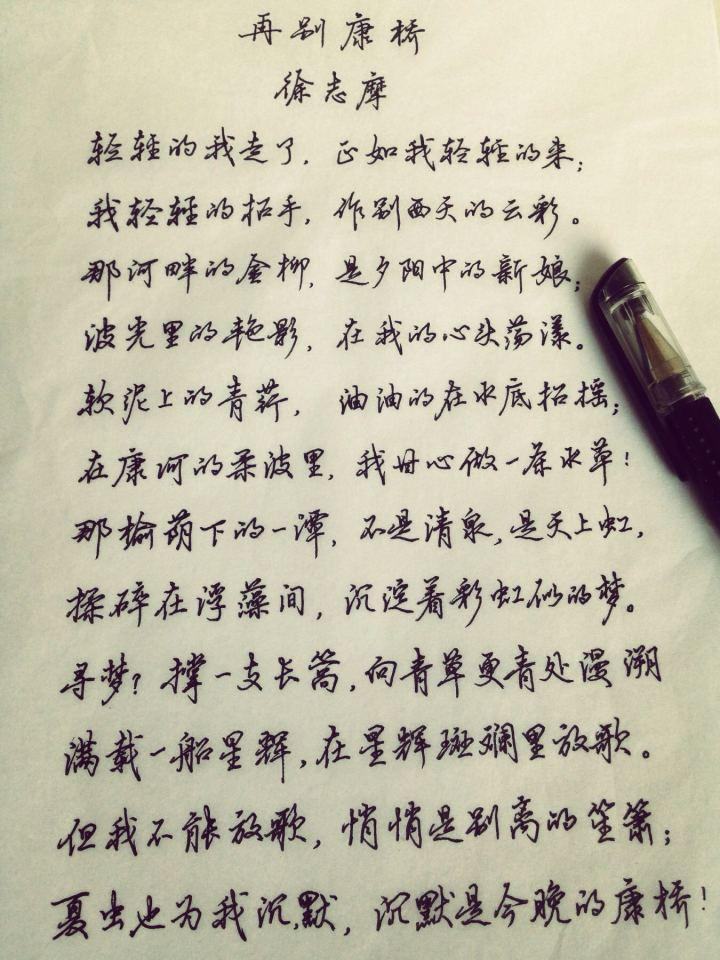 再别康桥
徐志摩
轻轻的我走了，正如我轻轻的来；
我轻轻的招手，作别西天的云彩。
那河畔的金柳，是夕阳中的新娘；
波光里的艳影，在我的心头荡漾。
软泥上的青荇，油油的在水底招摇；
在康河的柔波里，我甘心做一条水草！
那榆荫下的一潭，不是清泉，是天上虹，
揉碎在浮藻间，沉淀着彩虹似的梦。
寻梦？撑一支长篙，向青草更青处漫溯
满载一船星辉，在星辉斑斓里放歌。
但我不能放歌，悄悄是别离的笙箫；
夏虫也为我沉默，沉默是今晚的康桥！